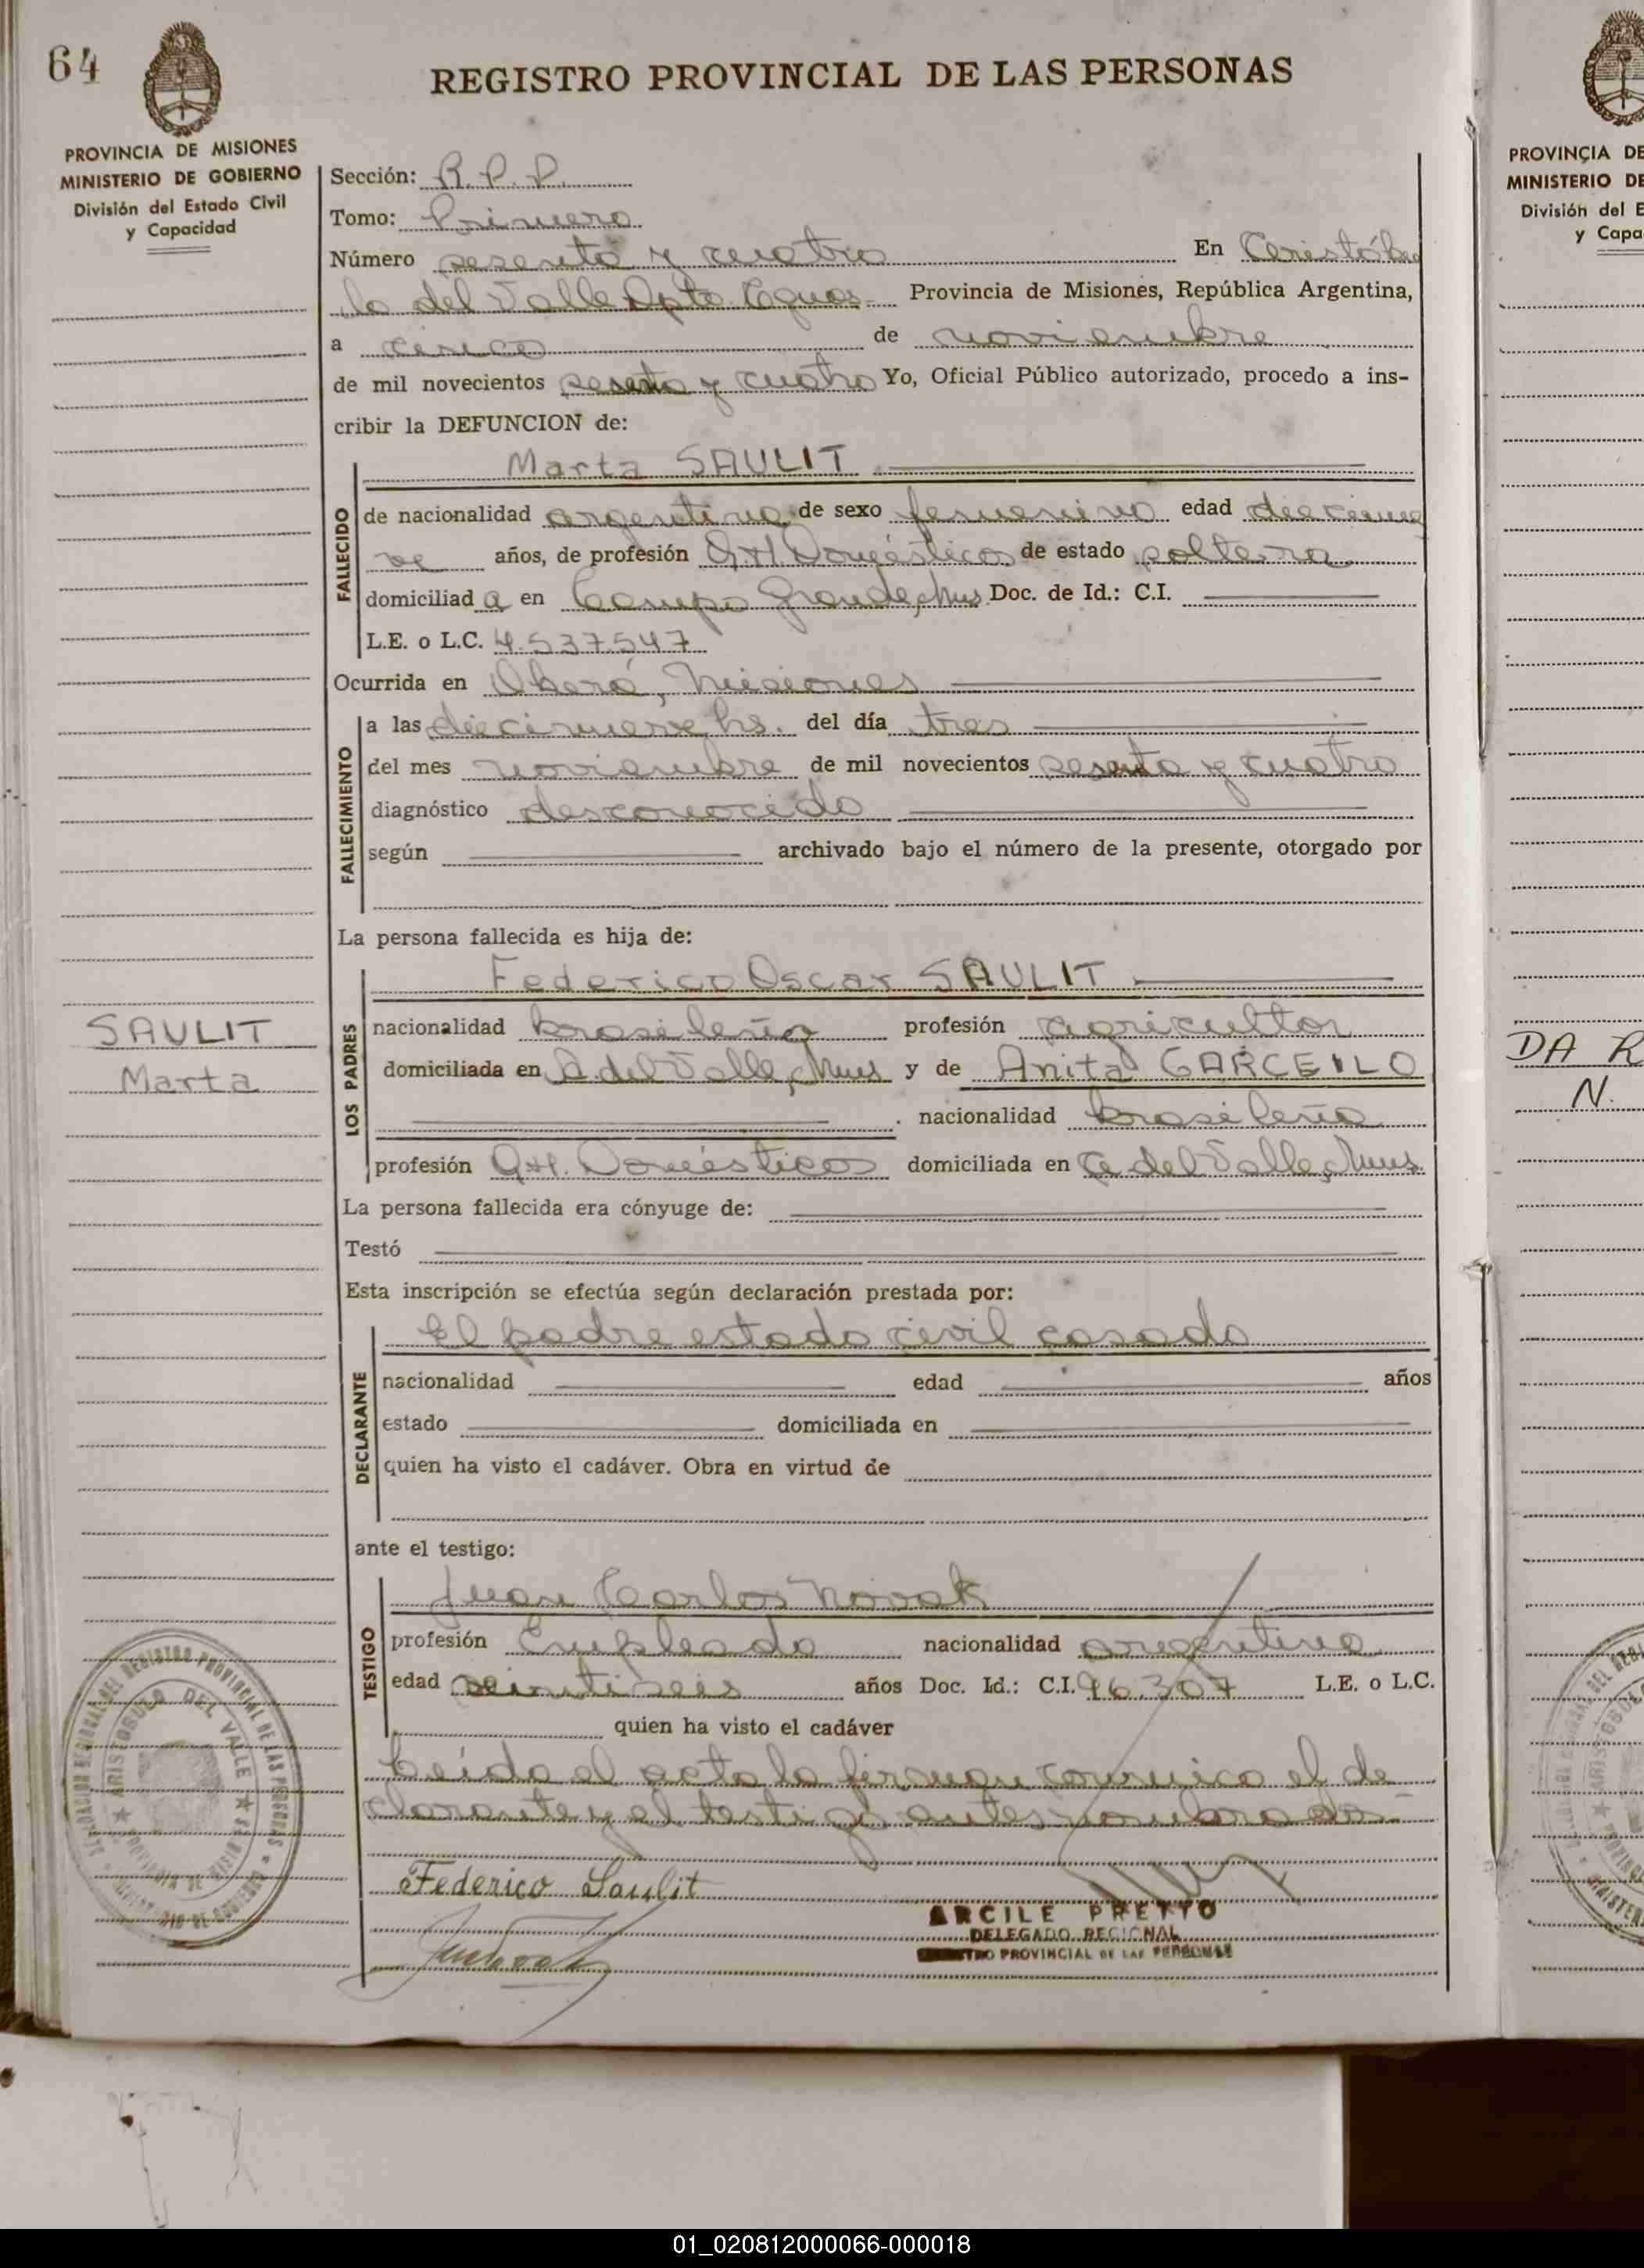 64
REGISTRO PROVINCIAL DE LAS PERSONAS
PROVINCIA DE MISIONES
MINISTERIO DE GOBIERNO
División del Estado Civil
y Capacidad
Sección: R. P. P.
Tomo: Primero
Número sesenta y cuatro En Aristóbu
lo del Valle Dpto Caguas Provincia de Misiones, República Argentina,
a cinco de noviembre
de mil novecientos sesenta y cuatro Yo, Oficial Público autorizado, procedo a ins-
cribir la DEFUNCION de:
Marta SAULIT
FALLECIDO
de nacionalidad argentina de sexo femenino edad diecinue
ve años, de profesión Q.H. Domésticos de estado soltera
domiciliada en Campo Grande, Mnes Doc. de Id.: C.I.
L.E. o L.C. 4.537.547
Ocurrida en Oberá, Misiones
FALLECIMIENTO
a las diecinueve hs. del día tres
del mes noviembre de mil novecientos sesenta y cuatro
diagnóstico desconocido
según archivado bajo el número de la presente, otorgado por
La persona fallecida es hija de:
Federico Oscar SAULIT
LOS PADRES
nacionalidad brasileña profesión agricultor
domiciliada en A. del Valle, Mnes y de Anita GARCEILO
nacionalidad brasileña
profesión Q.H. Domésticos domiciliada en A. del Valle, Mnes.
SAULIT
Marta
La persona fallecida era cónyuge de:
Testó
Esta inscripción se efectúa según declaración prestada por:
El padre estado civil casado
DECLARANTE
nacionalidad edad años
estado domiciliada en
quien ha visto el cadáver. Obra en virtud de
ante el testigo:
Juan Carlos Novak
TESTIGO
profesión Empleado nacionalidad argentina
edad veintiseis años Doc. Id.: C.I. 96.307 L.E. o L.C.
quien ha visto el cadáver
Leída el acta la firman conmigo el de
clarante y el testigo antes nombrados.-
Federico Saulit
ARCILE PRETTO
DELEGADO REGIONAL
REGISTRO PROVINCIAL DE LAS PERSONAS
ARISTOBULO DEL VALLE
PROVINCIA DE
MINISTERIO DE
División del E
y Capa
DA R
N.
01_020812000066-000018